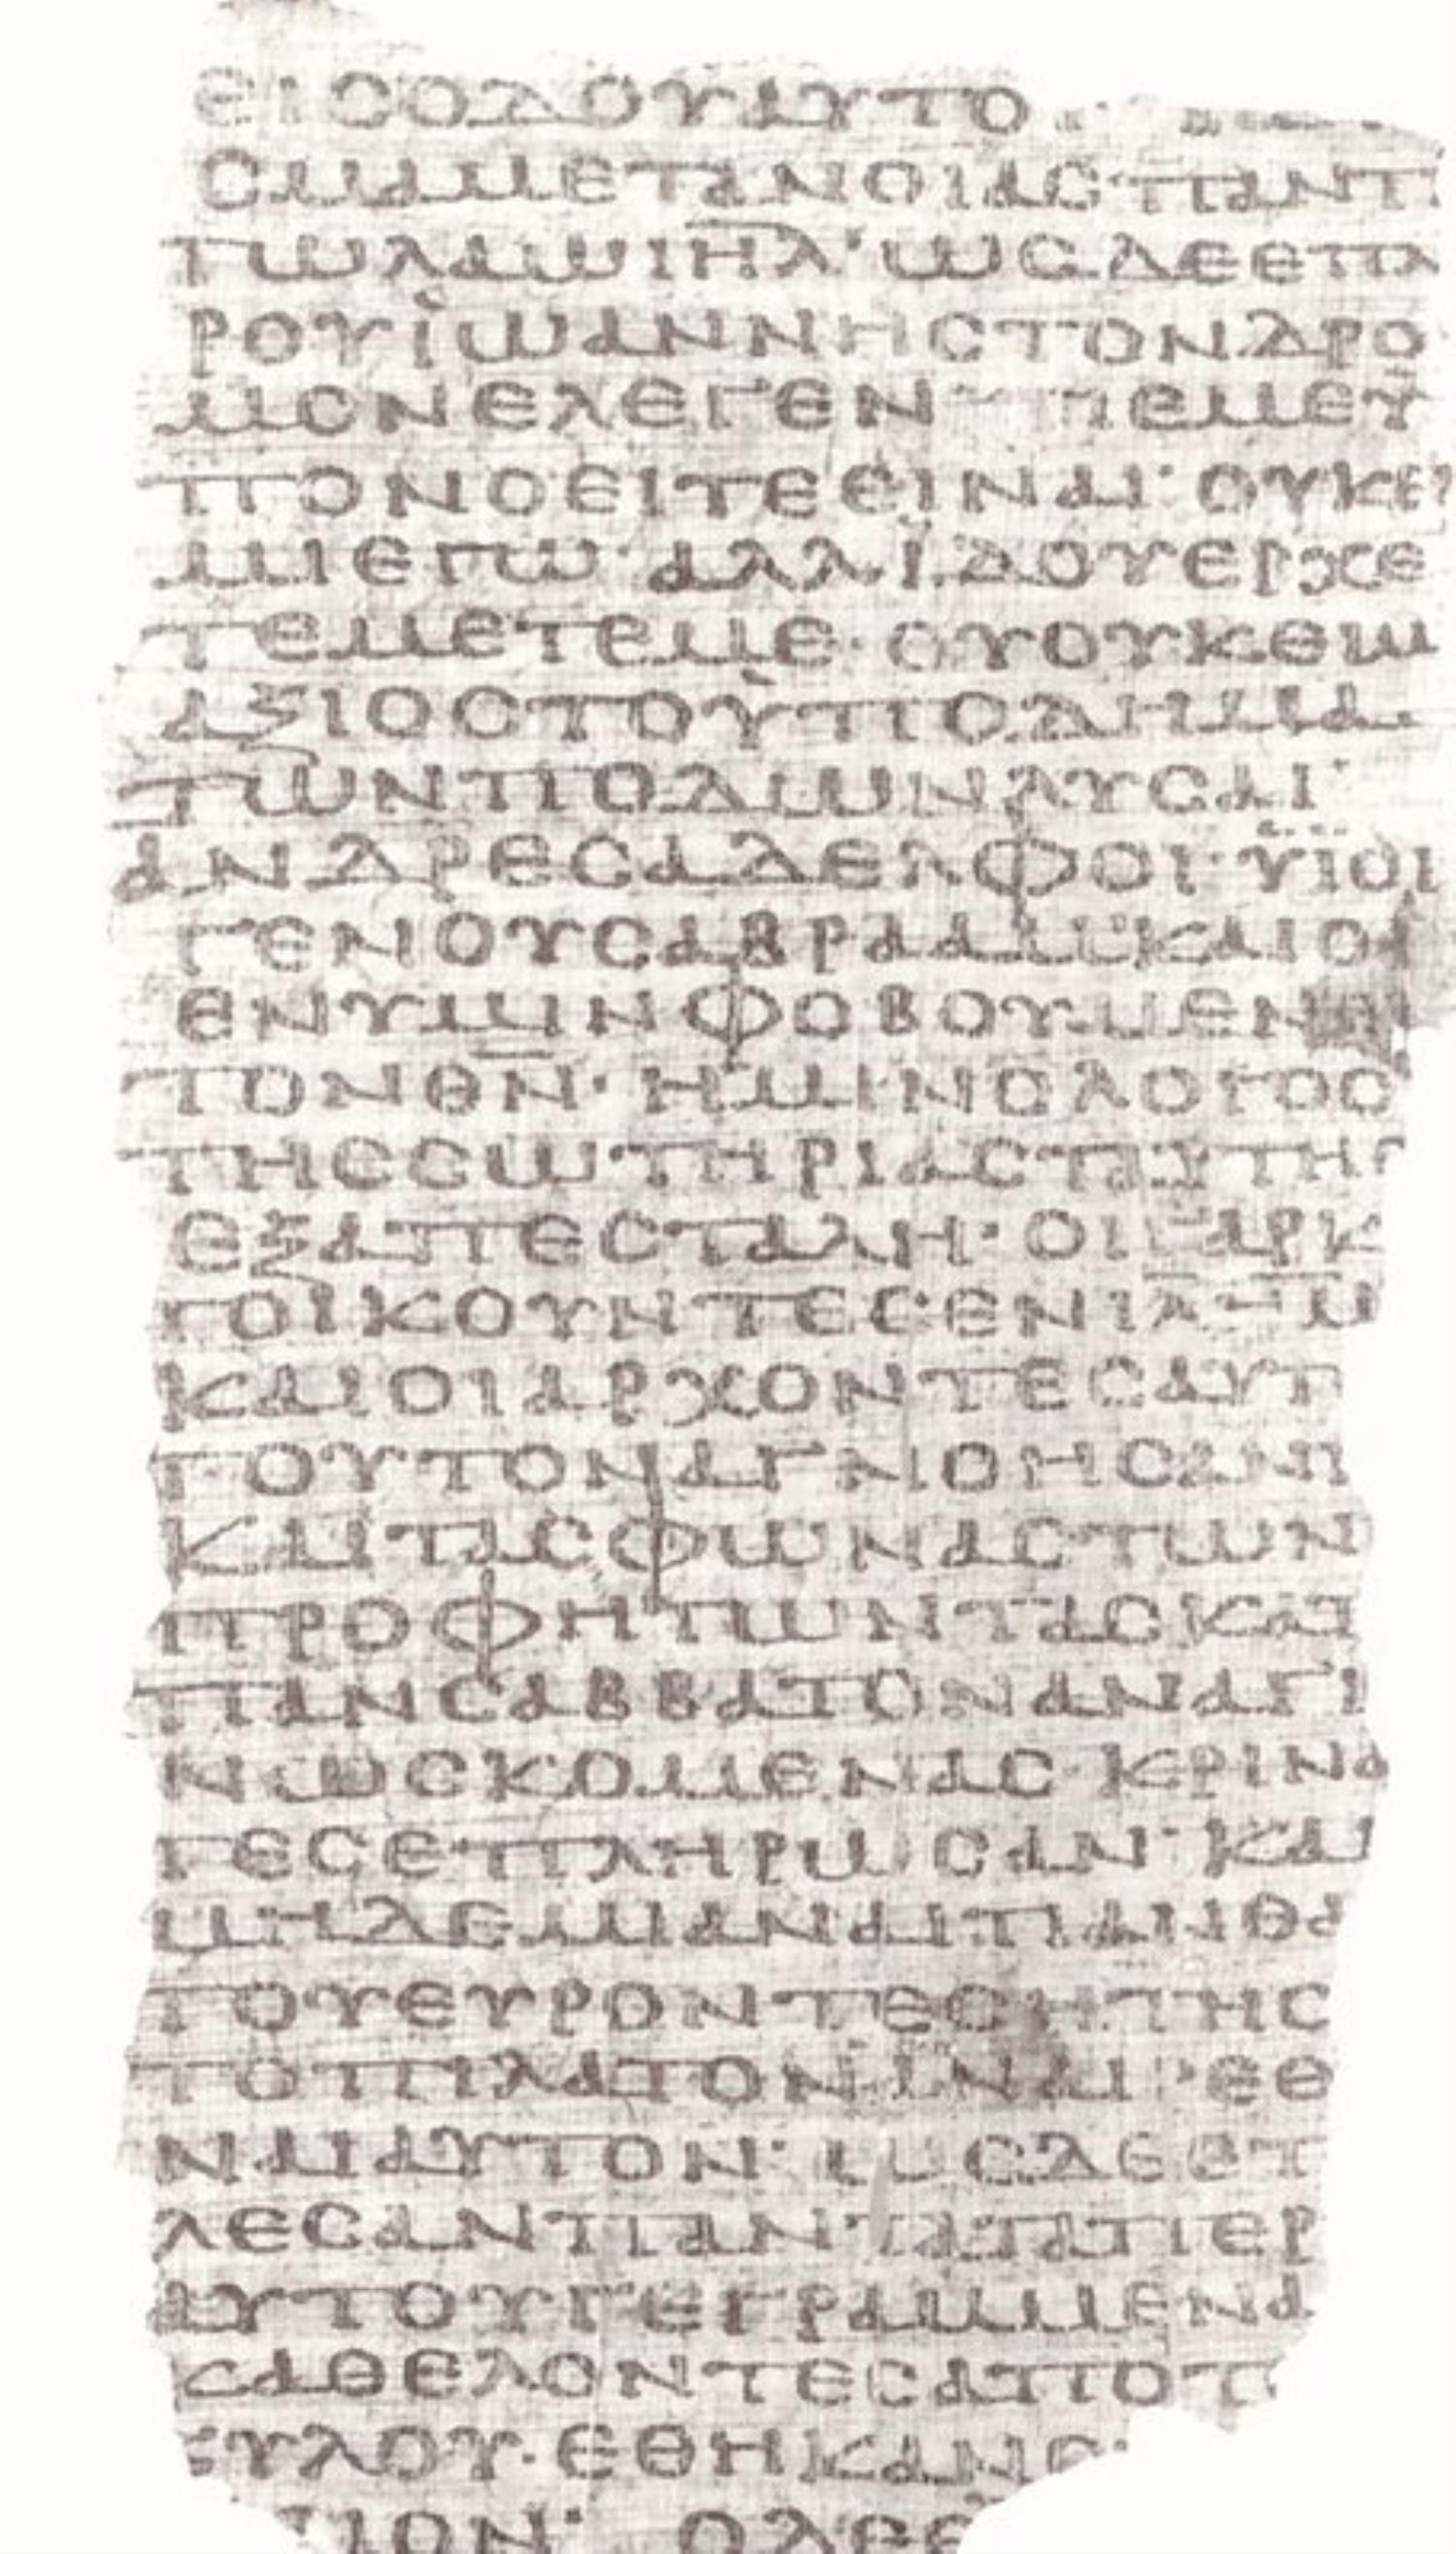 ΕΙΣΟΔΟΥ ΑΥΤΟ
ΣΜΑ ΜΕΤΑΝΟΙΑΣ ΠΑΝΤΙ
ΤΩ ΛΑΩ ΙΗΛ· ΩΣ ΔΕ ΕΠΛ
ΡΟΥ ΙΩΑΝΝΗΣ ΤΟΝ ΔΡΟ
ΜΟΝ ΕΛΕΓΕΝ ΕΜΕ Ϋ
ΠΟΝΟΕΙΤΕ ΕΙΝΑΙ· ΟΥΚ ΕΙ
ΜΙ ΕΓΩ· ΑΛΛ ΙΔΟΥ ΕΡΧΕ
ΤΕ ΜΕΤ ΕΜΕ· ΟΥ ΟΥΚ ΕΙΜΙ
ΑΞΙΟΣ ΤΟ ΥΠΟΔΗΜΑ
ΤΩΝ ΠΟΔΩΝ ΛΥΣΑΙ·
ΑΝΔΡΕΣ ΑΔΕΛΦΟΙ· ΫΙΟΙ
ΓΕΝΟΥΣ ΑΒΡΑΑΜ ΚΑΙ ΟΙ
ΕΝ ΥΜΙΝ ΦΟΒΟΥΜΕΝΟΙ
ΤΟΝ ΘΝ· ΗΜΙΝ Ο ΛΟΓΟΣ
ΤΗΣ ΣΩΤΗΡΙΑΣ ΤΑΥΤΗΣ
ΕΞΑΠΕΣΤΑΛΗ· ΟΙ ΓΑΡ Κ
ΤΟΙΚΟΥΝΤΕΣ ΕΝ ΙΛΗΜ
ΚΑΙ ΟΙ ΑΡΧΟΝΤΕΣ ΑΥΤ
ΤΟΥΤΟΝ ΑΓΝΟΗΣΑΝΤ
ΚΑΙ ΤΑΣ ΦΩΝΑΣ ΤΩΝ
ΠΡΟΦΗΤΩΝ ΤΑΣ ΚΑΤ
ΠΑΝ ΣΑΒΒΑΤΟΝ ΑΝΑΓΙ
ΝΩΣΚΟΜΕΝΑΣ ΚΡΙΝΑ
ΤΕΣ ΕΠΛΗΡΩΣΑΝ· ΚΑΙ
ΜΗΔΕΜΙΑΝ ΑΙΤΙΑΝ ΘΑ
ΤΟΥ ΕΥΡΟΝΤΕΣ ΗΤΗΣ
ΤΟ ΠΙΛΑΤΟΝ ΙΝΑ
ΝΑΙ ΑΥΤΟΝ· ΩΣ ΔΕ ΕΤ
ΛΕΣΑΝ ΠΑΝΤΑ ΤΑ ΠΕΡ
ΑΥΤΟΥ ΓΕΓΡΑΜΜΕΝΑ
ΚΑΘΕΛΟΝΤΕΣ ΑΠΟ Τ
ΞΥΛΟΥ· ΕΘΗΚΑΝ
ΙΟΝ· Ο ΔΕ